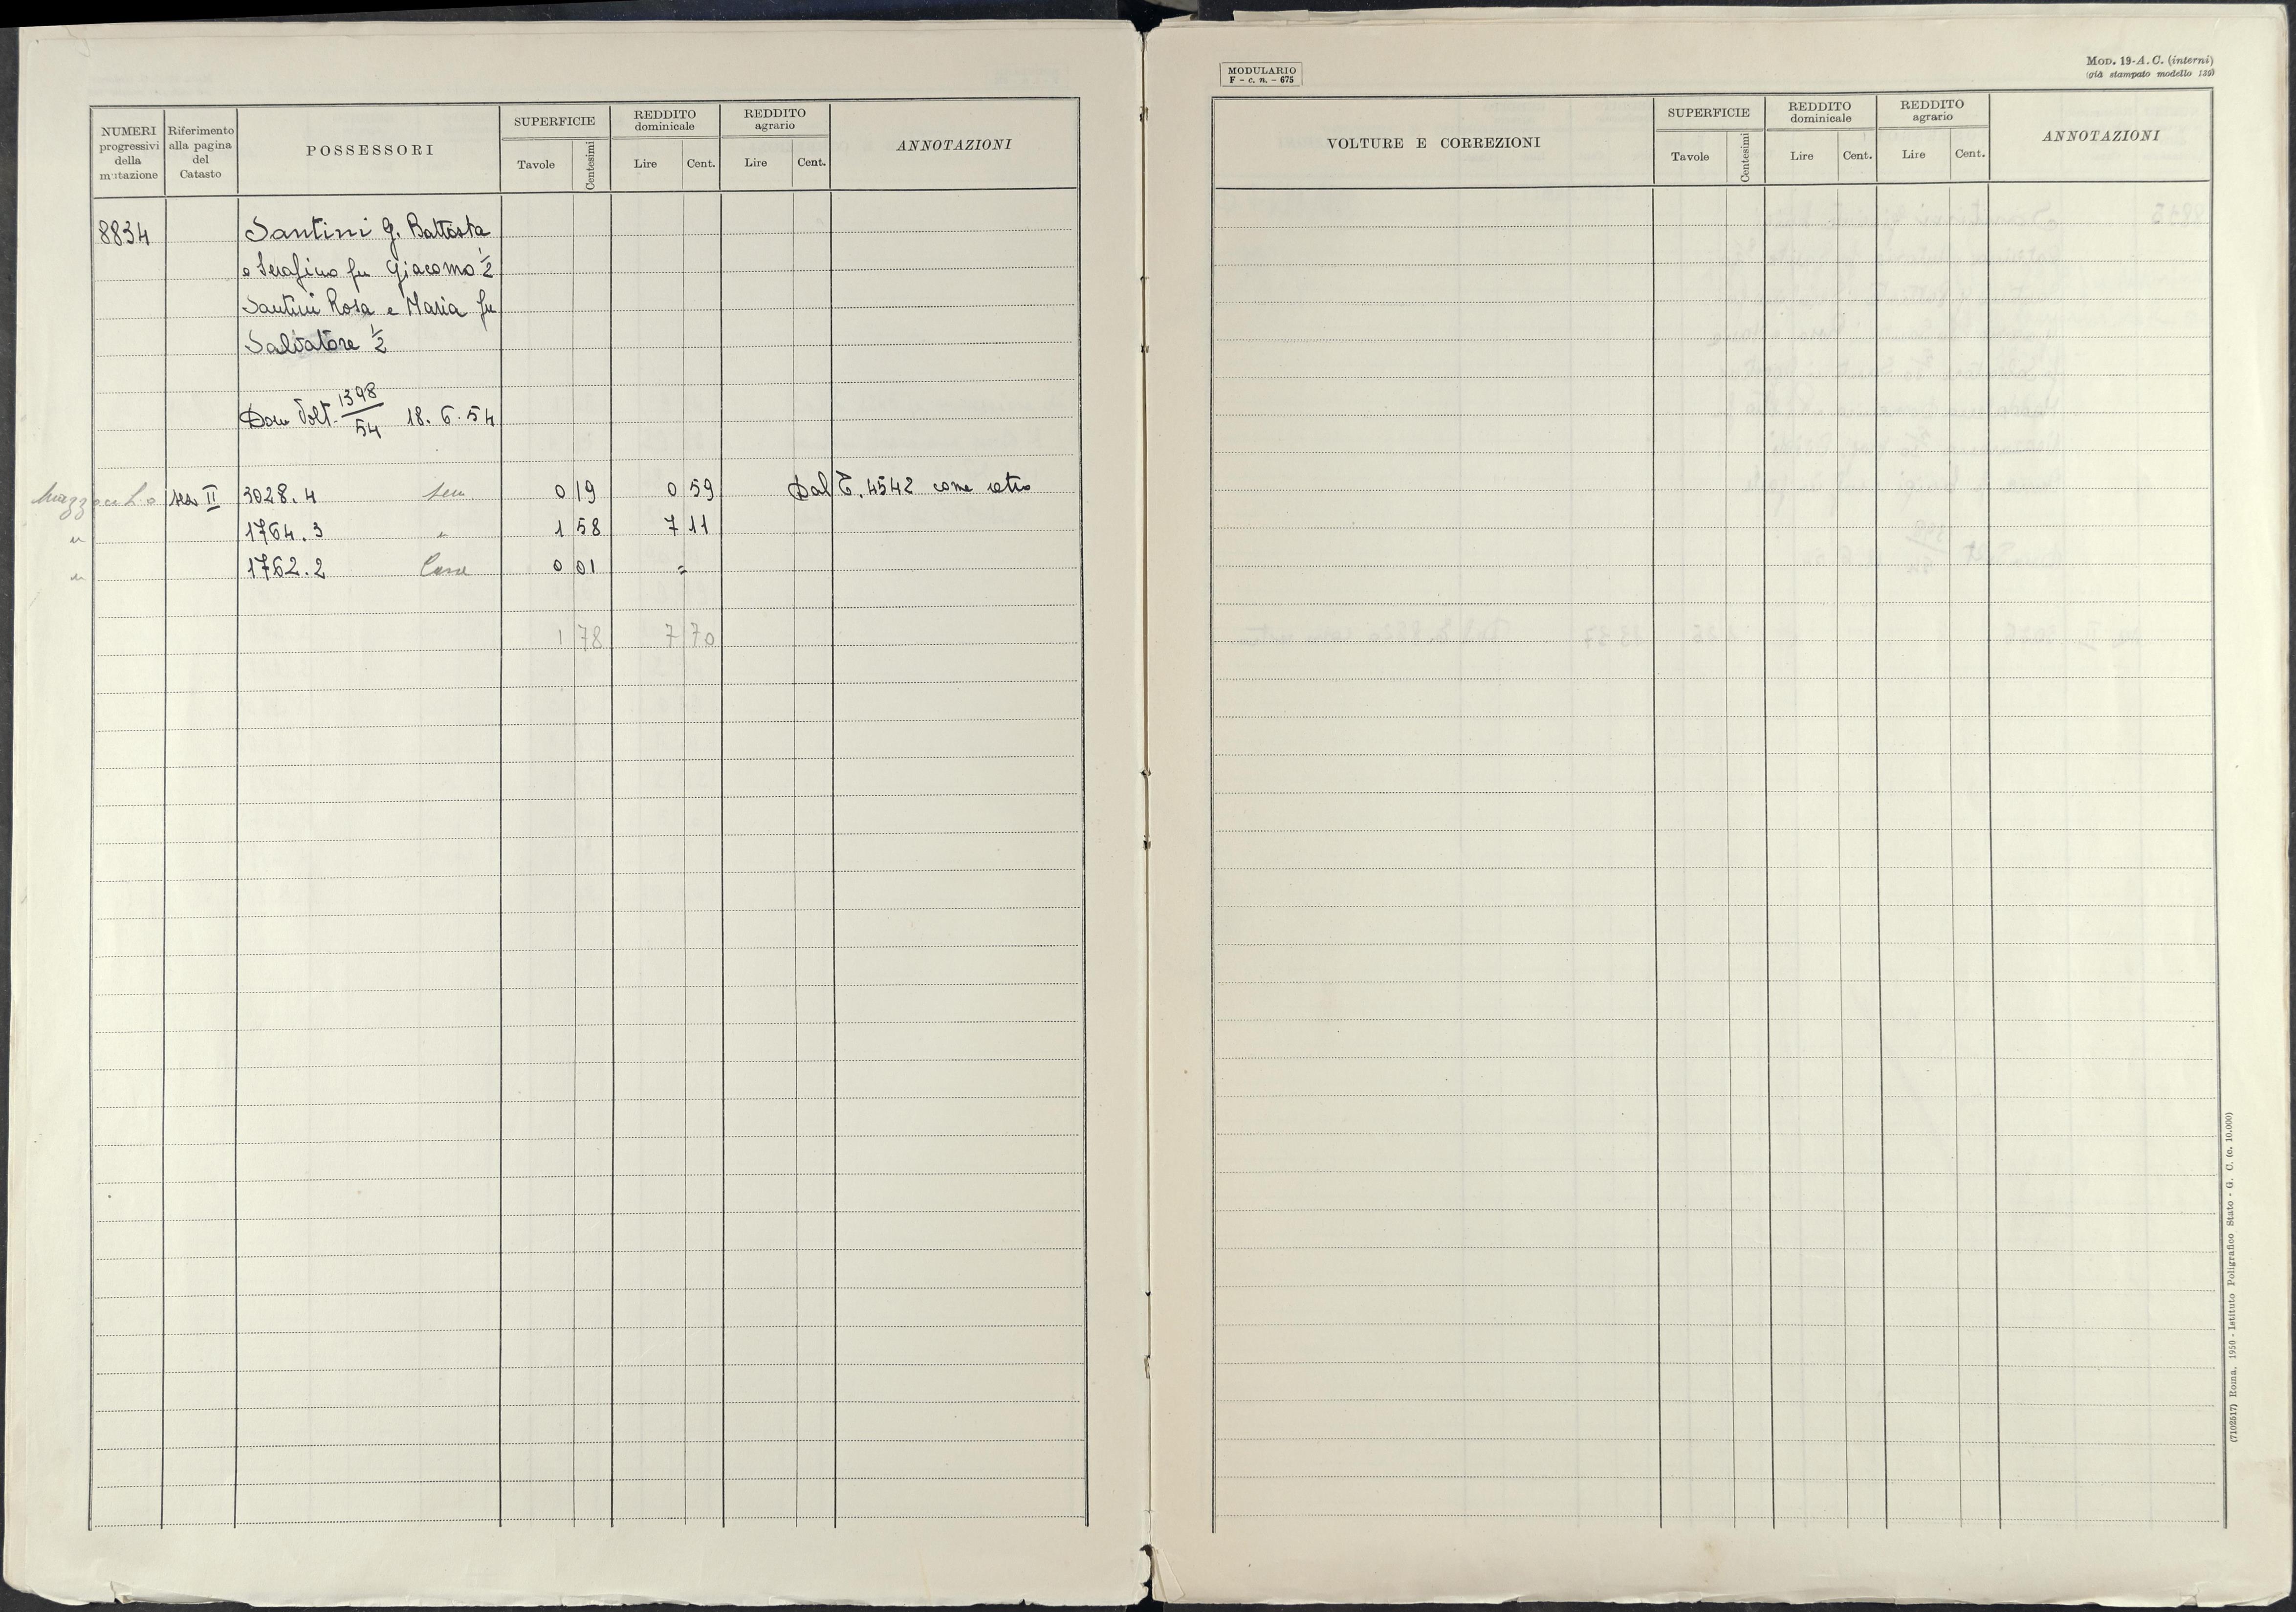 NUMERI progressivi della mutazione
Riferimento alla pagina del Catasto
POSSESSORI
SUPERFICIE
Tavole Centesimi
REDDITO dominicale
Lire Cent.
REDDITO agrario
Lire Cent.
ANNOTAZIONI
8834 Santini G. Battista
e Serafino fu Giacomo 1/2
Santini Rosa e Maria fu
Salvatore 1/2
Dom Volt. 1398/54 18.6.54
sez II 3028.4 sem 0 19 0 59 Dal C. 4542 come retro
1764.3 " 1 58 7 11
1762.2 Casa 0 01 =
1 78 7 70
MODULARIO
F - c. n. - 675
MOD. 19-A. C. (interni)
(già stampato modello 139)
VOLTURE E CORREZIONI
SUPERFICIE
Tavole Centesimi
REDDITO dominicale
Lire Cent.
REDDITO agrario
Lire Cent.
ANNOTAZIONI
(7102517) Roma, 1950 - Istituto Poligrafico Stato - G. C. (c. 10.000)